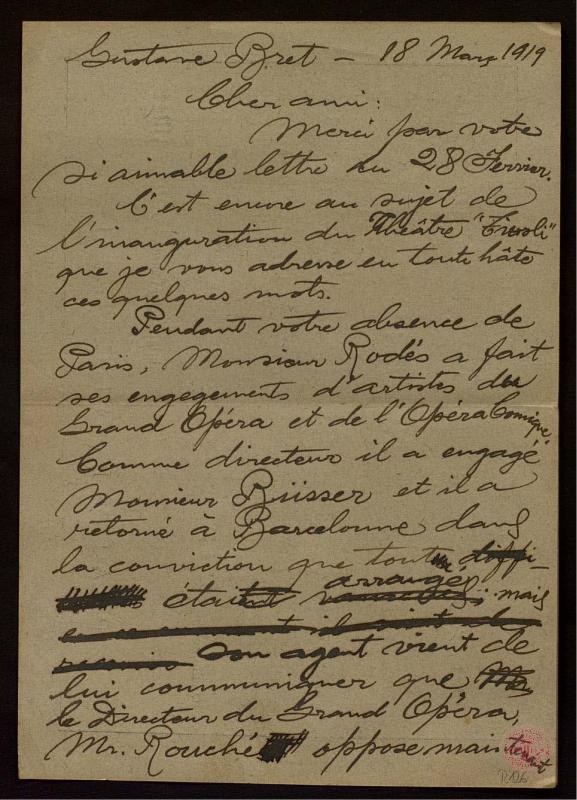 Gustave Bret - 18 Mars 1919
Cher ami:
Merci par votre
si aimable lettre du 28 Fevrier.
C'est encore au sujet de
l'inauguration du Théâtre "Tivoli"
que je vous adresse en toute hâte
ces quelques mots.
Pendant votre absence de
Paris, Monsieur Rodés a fait
ses engegements d'artistes du
Grand Opéra et de l'Opéra Comique.
Comme directeur il a engagé
Monsieur Büsser et il a
retorné à Barcelonne dans
la conviction que tout
était arrangé; mais
son agent vient de
lui communiquer que
le Directeur du Grand Opéra,
Mr. Rouché oppose maintenant
R.126